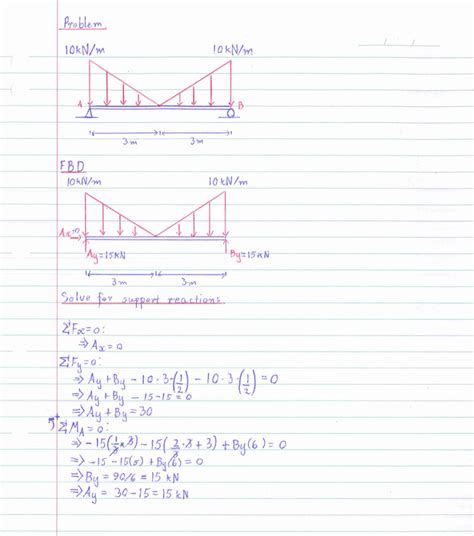 Problem
10kN/m 10kN/m
A B
3m 3m
FBD
10kN/m 10kN/m
Ax=0
Ay=15kN By=15kN
3m 3m
Solve for support reactions
ΣFx=0:
⇒ Ax=0
ΣFy=0:
⇒ Ay + By - 10·3·(1/2) - 10·3·(1/2) = 0
⇒ Ay + By - 15 - 15 = 0
⇒ Ay + By = 30
+ ΣMA=0:
⇒ -15(1/3×3) - 15(2/3·3+3) + By(6) = 0
⇒ -15 - 15(5) + By(6) = 0
⇒ By = 90/6 = 15 kN
⇒ Ay = 30-15 = 15 kN